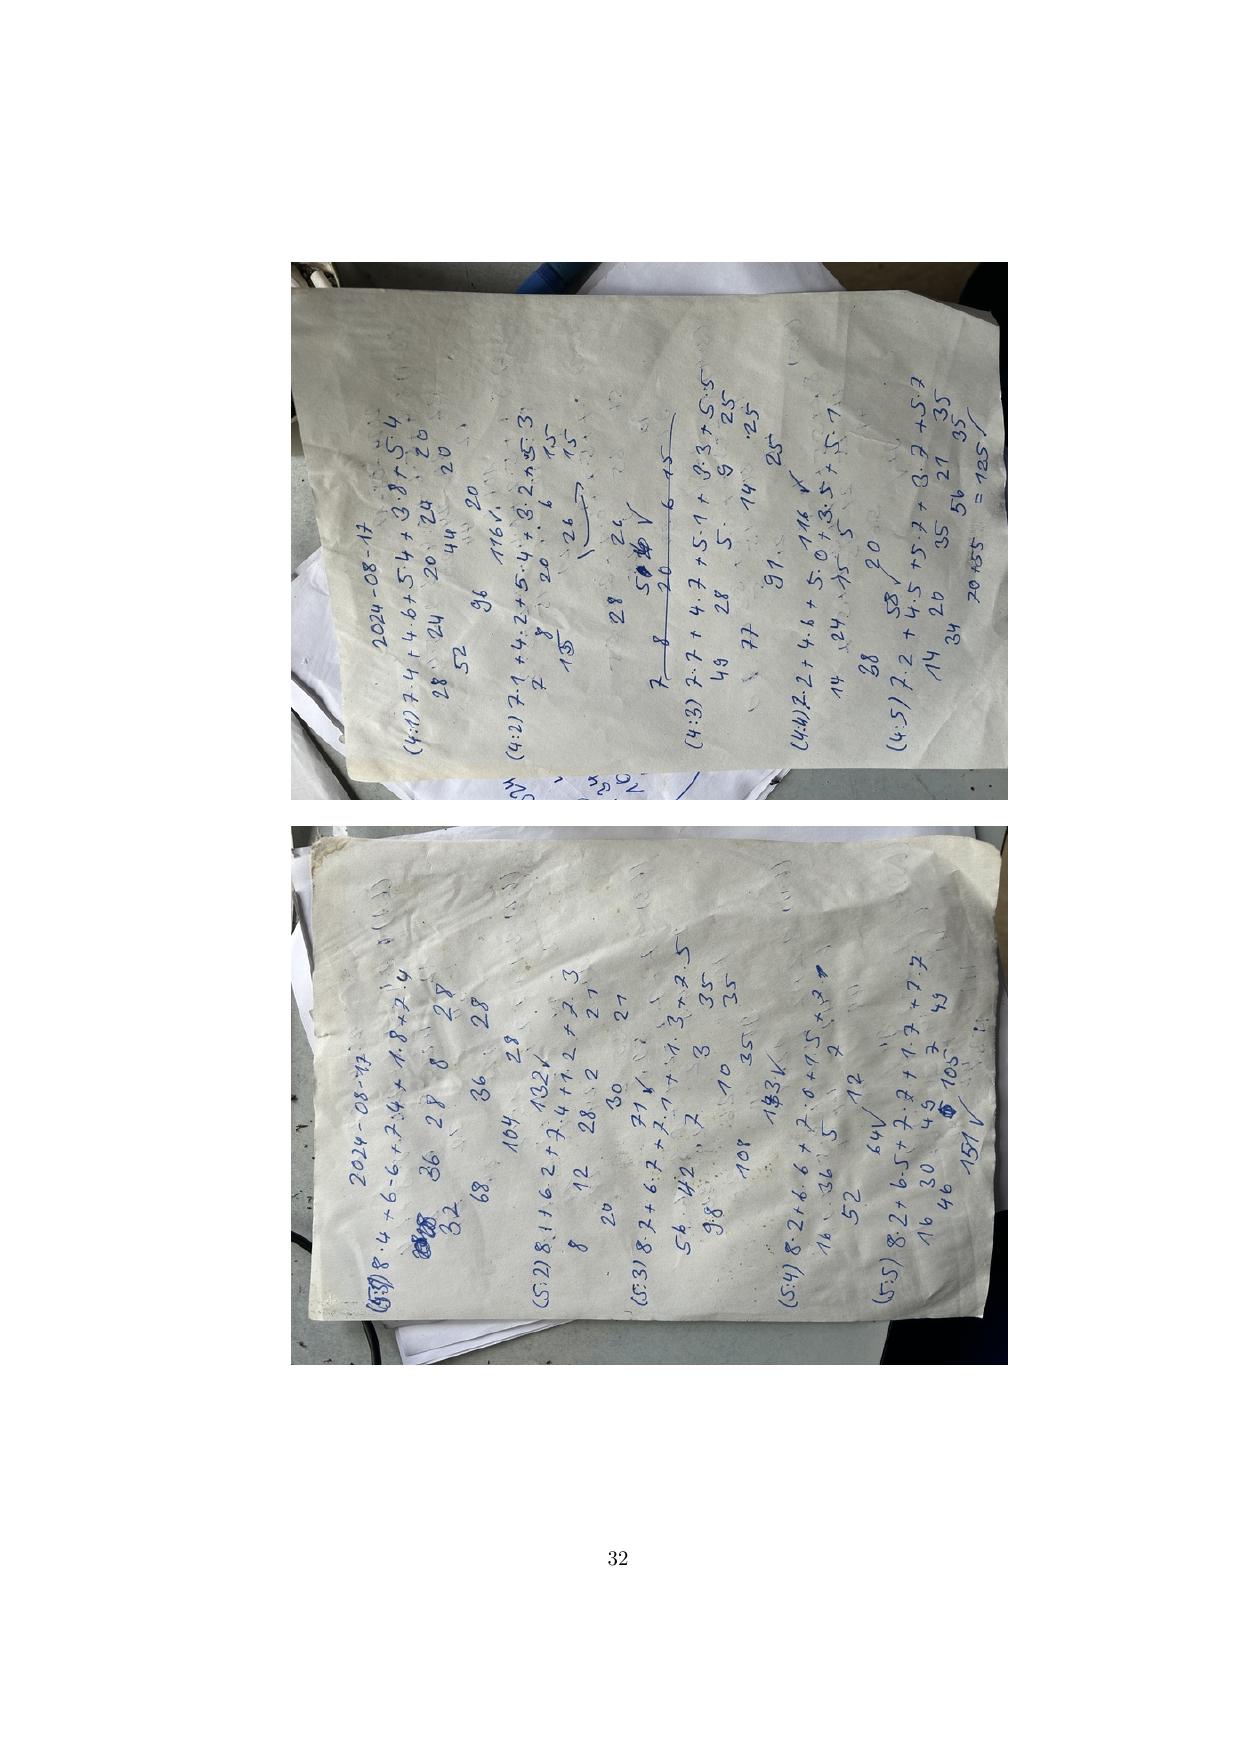 2024-08-17
(4:1) 7·4 + 4·6 + 5·4 + 3·8 + 5·4
28 24 20 24 20
52 44 20
96 20
116 ✓
(4:2) 7·1 + 4·2 + 5·4 + 3·2 + 5·3
7 8 20 6 15
15 26 15
28 26
7 8 20 6 15
(4:3) 7·7 + 4·7 + 5·1 + 3·3 + 5·5
49 28 5 9 25
77 14 25
91 25
116 ✓
(4:4) 7·2 + 4·6 + 5·0 + 3·5 + 5·1
14 24 15 5
38 20
58 ✓
(4:5) 7·2 + 4·5 + 5·7 + 3·7 + 5·7
14 20 35 21 35
34 35 56 35
70+55 = 125 ✓
2024-08-17
8·4 + 6·6 + 7·4 + 1·8 + 7·4
32 36 28 8 28
68 36 28
104 28
132 ✓
(5:2) 8·1 + 6·2 + 7·4 + 1·2 + 7·3
8 12 28 2 21
20 30 21
71 ✓
(5:3) 8·7 + 6·7 + 7·1 + 1·3 + 7·5
56 42 7 3 35
98 10 35
108 35
143 ✓
(5:4) 8·2 + 6·6 + 7·0 + 1·5 + 7·1
16 36 5 7
52 12
64 ✓
(5:5) 8·2 + 6·5 + 7·7 + 1·7 + 7·7
16 30 49 7 49
46 105
151 ✓
32